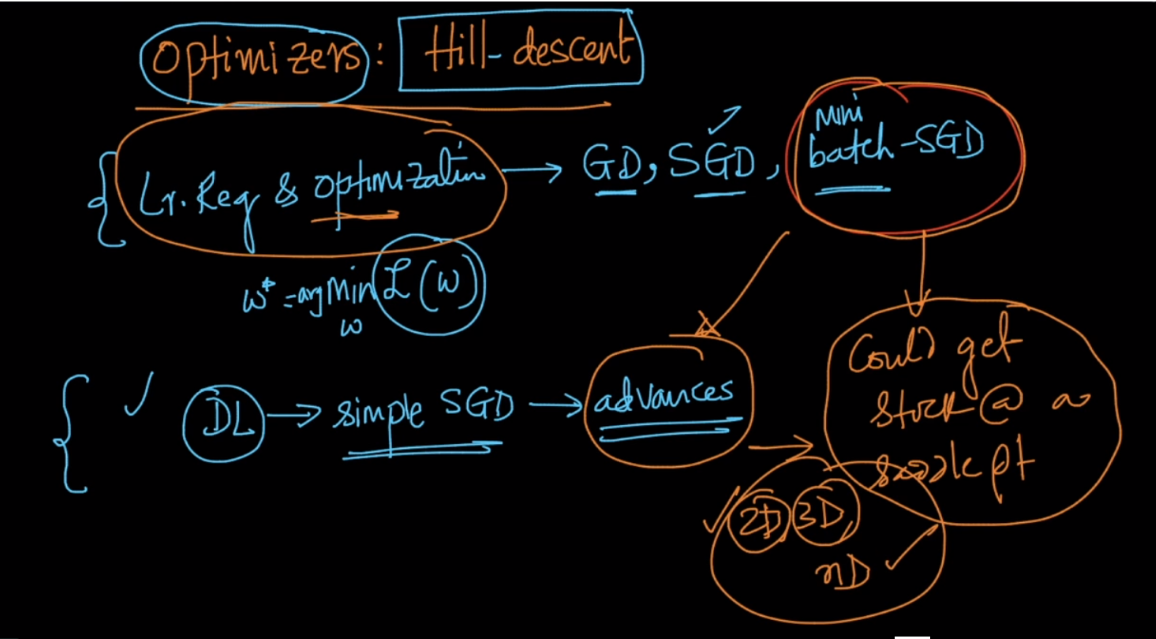 Optimizers: Hill-descent
Lr. Reg & optimization → GD, SGD, Mini batch-SGD
w* = argmin L(w)
w
DL → simple SGD → advances
Could get
stuck @ a
saddle pt
2D 3D,
nD